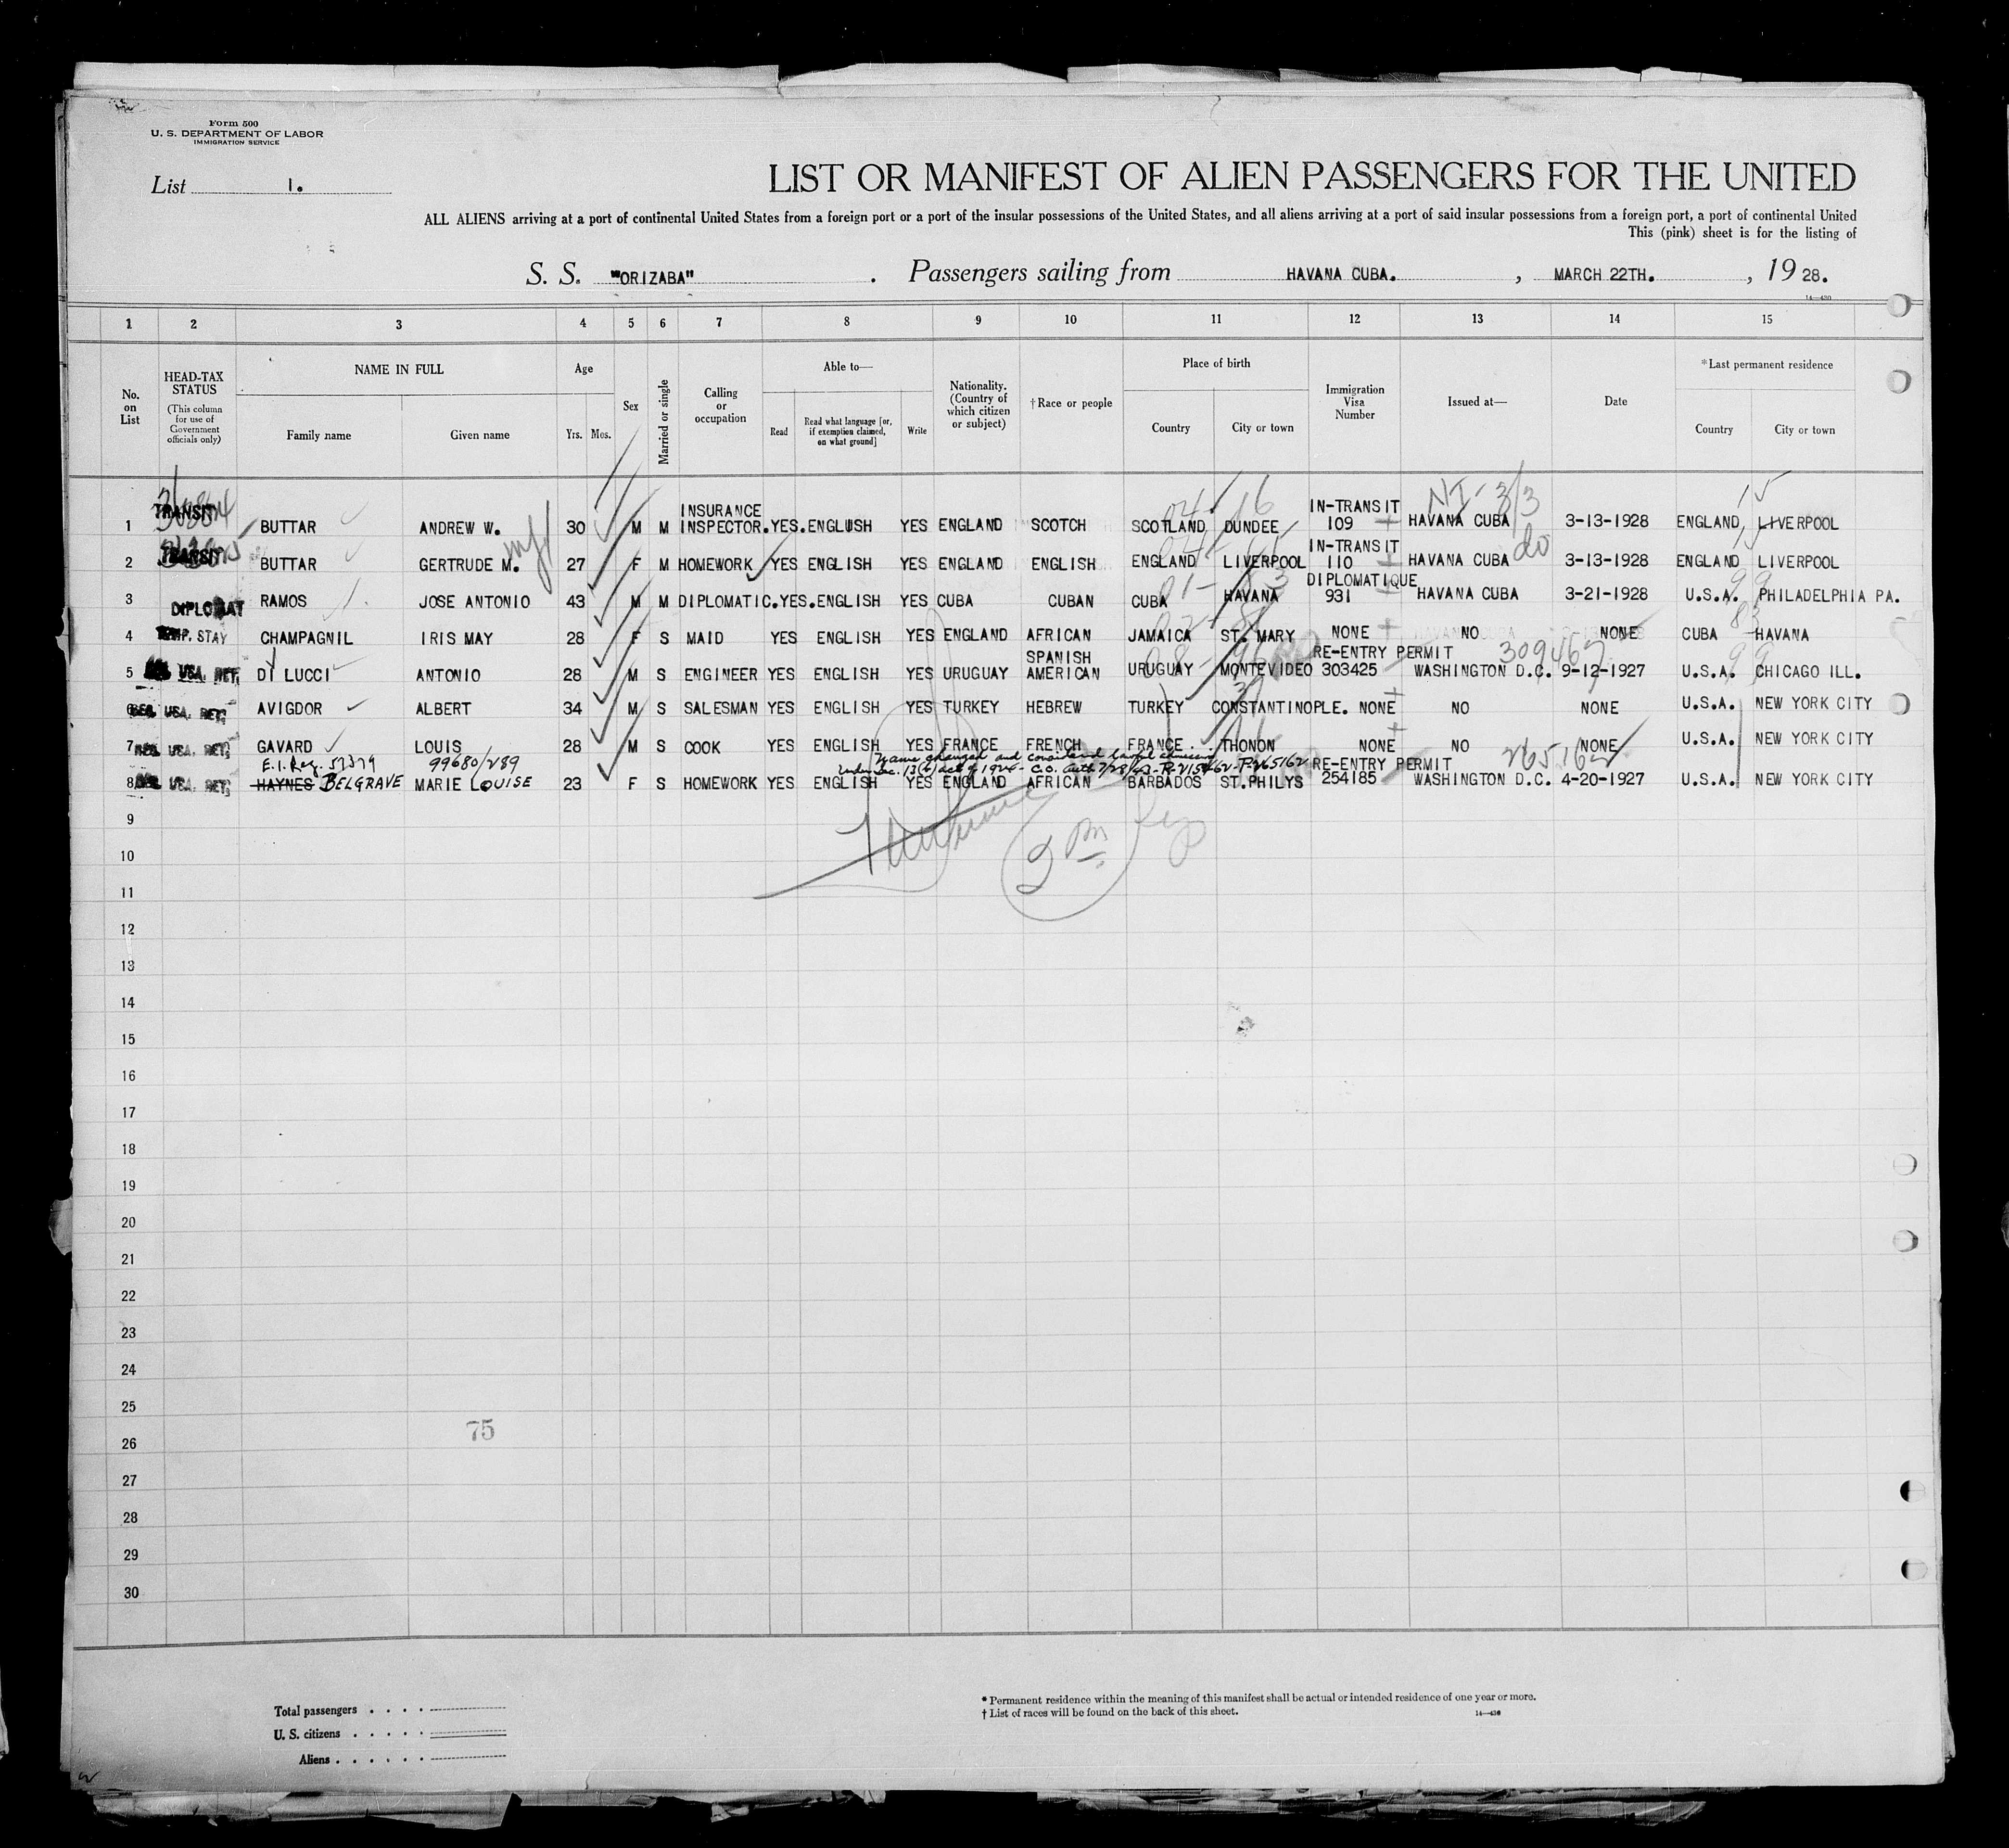 Form 500
U. S. DEPARTMENT OF LABOR
IMMIGRATION SERVICE
List 1.
LIST OR MANIFEST OF ALIEN PASSENGERS FOR THE UNITED
ALL ALIENS arriving at a port of continental United States from a foreign port or a port of the insular possessions of the United States, and all aliens arriving at a port of said insular possessions from a foreign port, a port of continental United
This (pink) sheet is for the listing of
S. S. "ORIZABA" . Passengers sailing from HAVANA CUBA. , MARCH 22TH. , 19 28.
14—430
1 2 3 4 5 6 7 8 9 10 11 12 13 14 15
No. on List
HEAD-TAX STATUS (This column for use of Government officials only)
NAME IN FULL
Family name Given name
Age
Yrs. Mos.
Sex
Married or single
Calling or occupation
Able to—
Read
Read what language [or, if exemption claimed, on what ground]
Write
Nationality. (Country of which citizen or subject)
†Race or people
Place of birth
Country City or town
Immigration Visa Number
Issued at—
Date
*Last permanent residence
Country City or town
1 TRANSIT BUTTAR ANDREW W. 30 M M INSURANCE INSPECTOR. YES. ENGLISH YES ENGLAND SCOTCH SCOTLAND DUNDEE IN-TRANSIT 109 HAVANA CUBA 3-13-1928 ENGLAND LIVERPOOL
2 TRANSIT BUTTAR GERTRUDE M. 27 F M HOMEWORK YES ENGLISH YES ENGLAND ENGLISH ENGLAND LIVERPOOL IN-TRANSIT 110 HAVANA CUBA do 3-13-1928 ENGLAND LIVERPOOL
3 DIPLOMAT RAMOS JOSE ANTONIO 43 M M DIPLOMATIC. YES. ENGLISH YES CUBA CUBAN CUBA HAVANA DIPLOMATIQUE 931 HAVANA CUBA 3-21-1928 U.S.A. PHILADELPHIA PA.
4 TEMP. STAY CHAMPAGNIL IRIS MAY 28 F S MAID YES ENGLISH YES ENGLAND AFRICAN JAMAICA ST. MARY NONE NO NONE CUBA HAVANA
5 USA. RET. DI LUCCI ANTONIO 28 M S ENGINEER YES ENGLISH YES URUGUAY SPANISH AMERICAN URUGUAY MONTEVIDEO RE-ENTRY PERMIT 303425 WASHINGTON D.C. 309467 9-12-1927 U.S.A. CHICAGO ILL.
6 USA. RET. AVIGDOR ALBERT 34 M S SALESMAN YES ENGLISH YES TURKEY HEBREW TURKEY CONSTANTINOPLE. NONE NO NONE U.S.A. NEW YORK CITY
7 USA. RET. GAVARD LOUIS 28 M S COOK YES ENGLISH YES FRANCE FRENCH FRANCE. THONON NONE NO NONE U.S.A. NEW YORK CITY
E.I. Reg. 57379 99680/289
Name changed and considered lawful admission
under Sec. 13(b) Act of 1924 - C.O. Auth 7/28/43
265162
8 USA. RET. HAYNES BELGRAVE MARIE LOUISE 23 F S HOMEWORK YES ENGLISH YES ENGLAND AFRICAN BARBADOS ST. PHILYS RE-ENTRY PERMIT 254185 WASHINGTON D.C. 4-20-1927 U.S.A. NEW YORK CITY
9
10
11
12
13
14
15
16
17
18
19
20
21
22
23
24
25
26
27
28
29
30
75
Total passengers . . . .
U. S. citizens . . . . .
Aliens . . . . . .
* Permanent residence within the meaning of this manifest shall be actual or intended residence of one year or more.
† List of races will be found on the back of this sheet.
14—430